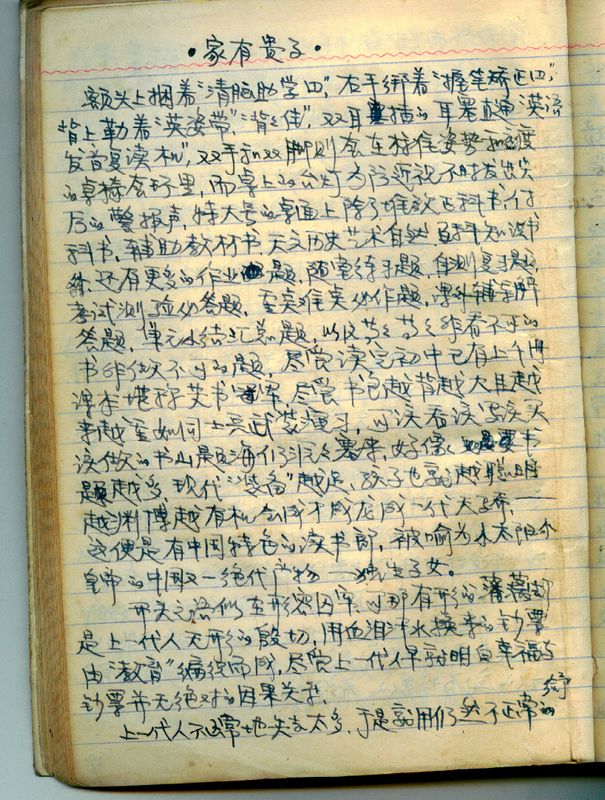 ·家有贵子·
额头上捆着“清脑助学四”,右手绑着“握笔矫正四”,
背上勒着“英姿带”“背背佳”,双耳插的耳塞直通“英语
发音复读机”,双手和双脚则会在标准姿势和
的桌椅里,而桌上的台灯为防近视不时发出
的警报声,特大号的桌面上除了堆放正科书付
科书,辅助教材书天文历史艺术自然百科知识书
外,还有更多的作业题,随堂练习题,自测复习题,
考试测验必答题,至关难点必作题,课外辅导解
答题,单元小结汇总题,以及等等等等看不可的
书非做不可的题,尽管读完初中已有上千册
课本堪称关书,尽管书包越背越大且越
来越重如同上兵武装演习,可该看该写该买
该做的书山题海们依次塞来,好像书
题越多,现代“装备”越足,孩子也就越聪明
越渊博越有机会成才成龙成一代天骄,——
这便是有中国特色的读书郎,被喻为小太阳小
皇帝的中国又一绝代产物——独生子女。
开头之语似在形容囚牢,可那有形的
是上一代人无形的殷切,用血泪汗水换来的钞票
由“教育”编织而成,尽管上一代人早就明白幸福与
钞票并无绝对的因果关系。
上一代人不正常地失去太多,于是就用仍然不正常的